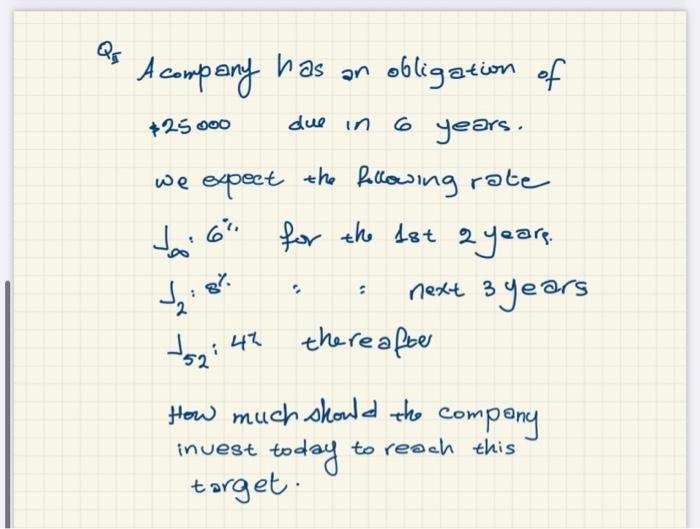 Q5 A company has an obligation of
$25000 due in 6 years.
we expect the following rate
J∞: 6% for the 1st 2 years.
J2: 8% : : next 3 years
J52: 4% thereafter
How much should the company
invest today to reach this
target.